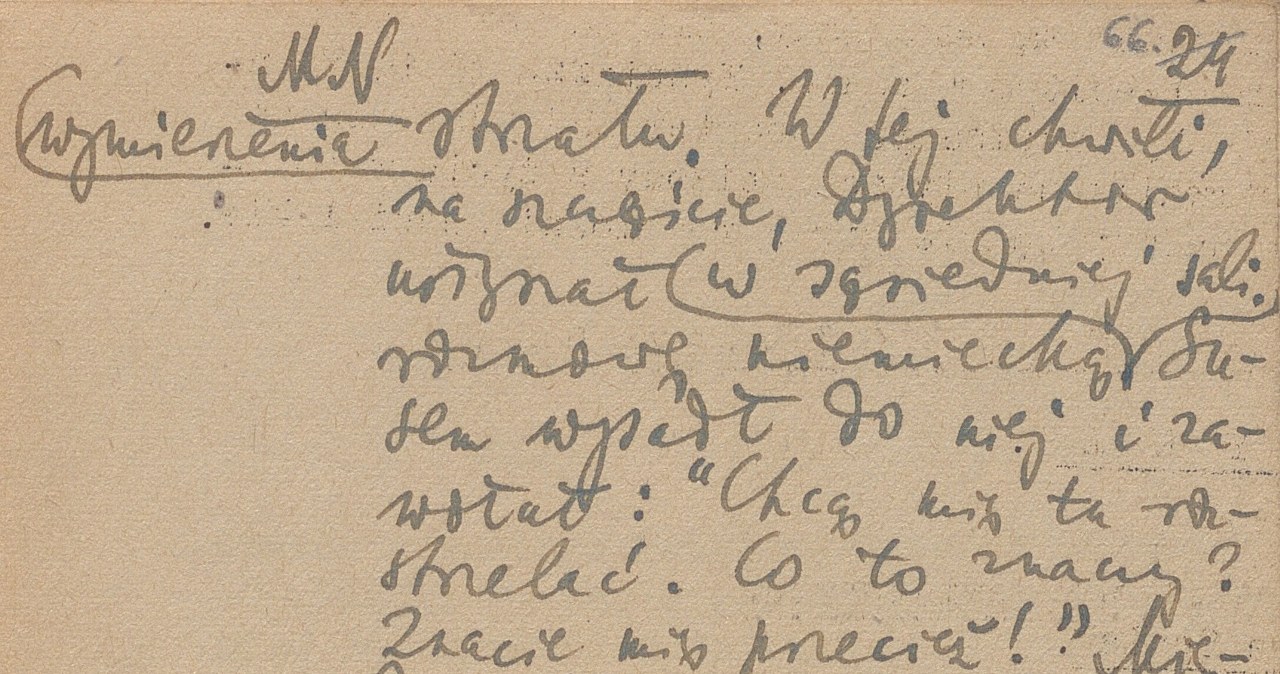 66. 24
M.N
wymierzenia strzału. W tej chwili,
na szczęście, Dyrektor
usłyszał w sąsiedniej sali
rozmowę niemiecką. Su-
sem wypadł do niej i za-
wołał: "Chcą mię tu roz-
strzelać. Co to znaczy?
Znacie mię przecież!" Mię-